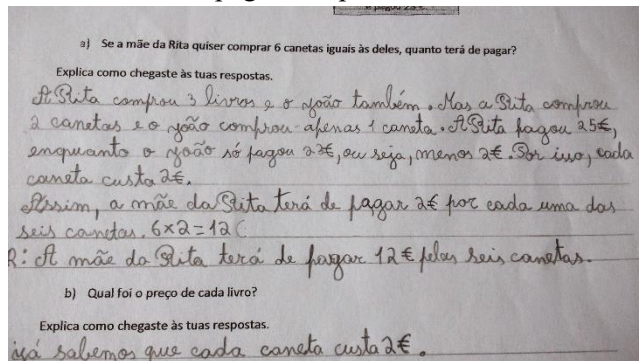 a) Se a mãe da Rita quiser comprar 6 canetas iguais às deles, quanto terá de pagar?
Explica como chegaste às tuas respostas.
A Rita comprou 3 livros e o João também. Mas a Rita comprou
2 canetas e o João comprou apenas 1 caneta. A Rita pagou 25€,
enquanto o João só pagou 23€, ou seja, menos 2€. Por isso, cada
caneta custa 2€.
Assim, a mãe da Rita terá de pagar 2€ por cada uma das
seis canetas. 6×2=12
R: A mãe da Rita terá de pagar 12€ pelas seis canetas.
b) Qual foi o preço de cada livro?
Explica como chegaste às tuas respostas.
já sabemos que cada caneta custa 2€.